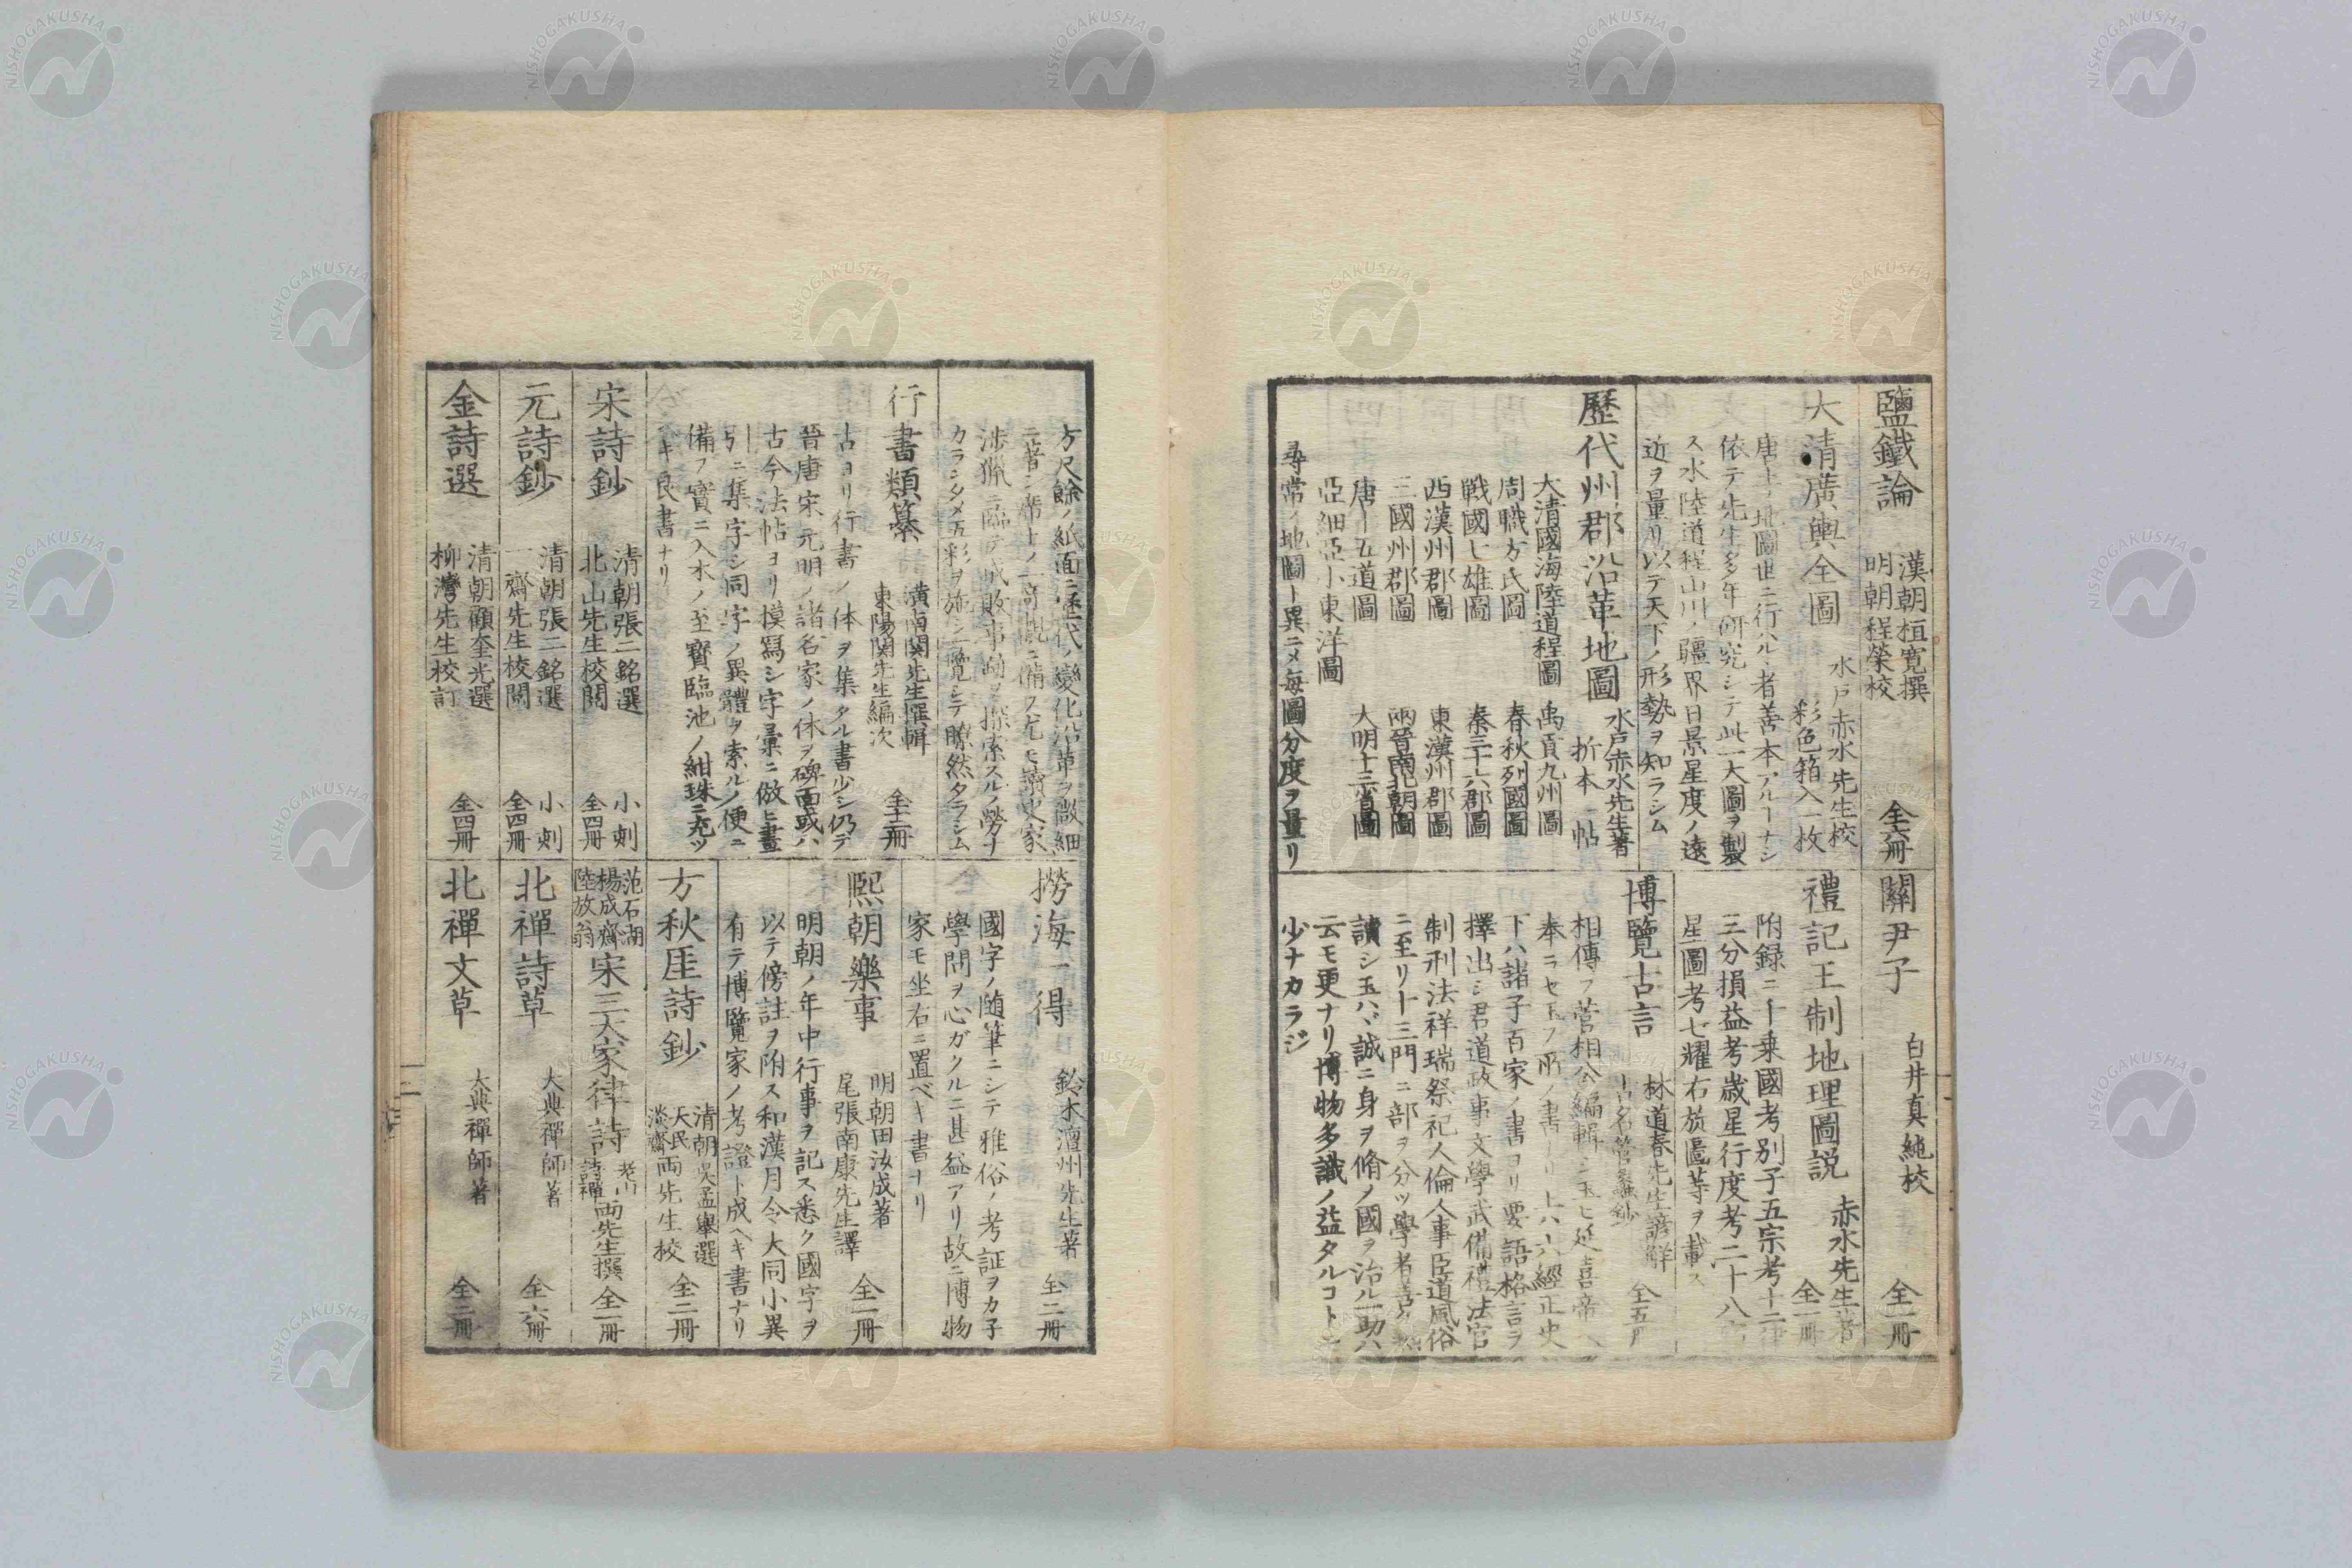 鹽鐵論
漢朝桓寛撰
明朝程榮校
全六冊
大清廣輿全圖
水戸赤水先生校
彩色箱入一枚
唐土ノ地圖世ニ行ハル、者善本アルーナシ
依テ先生多年研究シテ此一大圖ヲ製
ス水陸道程山川ノ疆界日景星度ノ遠
近ヲ量リ以テ天下ノ形勢ヲ知ラシム
歷代州郡沿革地圖
水戸赤水先生著
折本一帖
大清國海陸道程圖
禹貢九州圖
周職方氏圖
春秋列國圖
戦國七雄圖
秦三十六郡圖
西漢州郡圖
東漢州郡圖
三國州郡圖
兩晉南北朝圖
唐十五道圖
大明十三省圖
亞細亞小東洋圖
尋常ノ地圖ト異ニメ每圖分度ヲ量リ
關尹子
白井真純校
全一冊
禮記王制地理圖説
赤水先生著
全一冊
附録ニ十乗國考別子五宗考十二律
三分損益考歳星行度考二十八宿
星圖考七耀右旋圖等ヲ載ス
博覽古言
林道春先生諺解
一古名管蠡鈔
全五冊
相傳フ菅相公編輯シ玉ヒ延喜帝ヘ
奉ラセ玉フ所ノ書ナリ上ハ六經正史
下ハ諸子百家ノ書ヨリ要語格言ヲ
擇出シ君道政事文學武備禮法官
制刑法祥瑞祭祀人倫人事臣道風俗
ニ至リ十三門ニ部ヲ分ツ學者善ク熟
讀シ玉ハヾ誠ニ身ヲ脩ノ國ヲ治ル助ハ
云モ更ナリ博物多識ノ益タルコト
少ナカラジ
方尺餘ノ紙面ニ歷代ノ變化沿革ヲ微細
ニ著シ席上ノ一奇観ニ備フ尤モ讀史家
渉獵ニ臨テ成敗事蹟ヲ探索スルノ勞ナ
カラシタメ五彩ヲ施シ一覽シテ瞭然タラシム
行書類纂
潢南関先生撰輯
東陽関先生編次
全十二冊
古ヨリ行書ノ体ヲ集タル書少シ仍テ
晉唐宋元明ノ諸名家ノ体ヲ碑面或ハ
古今法帖ヨリ摸寫シ字彙ニ倣ヒ畫
引ニ集字シ同字ノ異體ヲ索ルノ便ニ
備フ實ニ入木ノ至寶臨池ノ紺珠ニ充ツ
ベキ良書ナリ
宋詩鈔
清朝張二銘選
北山先生校閲
小刻
全四冊
元詩鈔
清朝張二銘選
一齋先生校閲
小刻
全四冊
金詩選
清朝顧奎光選
柳灣先生校訂
全四冊
撈海一得
鈴木澶州先生著
全二冊
國字ノ隨筆ニシテ雅俗ノ考証ヲカ子
學問ヲ心ガクルニ甚益アリ故ニ博物
家モ坐右ニ置ベキ書ナリ
熙朝樂事
明朝田汝成著
尾張南康先生譯
全一冊
明朝ノ年中行事ヲ記ス悉ク國字ヲ
以テ傍註ヲ附ス和漢月令大同小異
有テ博覽家ノ考證ト成ヘキ書ナリ
方秋厓詩鈔
清朝吳孟舉選
天民
淡齋
両先生校
全二冊
范石湖
楊成齋
陸放翁
宋三大家律詩
詩禪
両先生撰
全一冊
北禪詩草
大典禪師著
全六冊
北禪文草
大典禪師著
全二冊